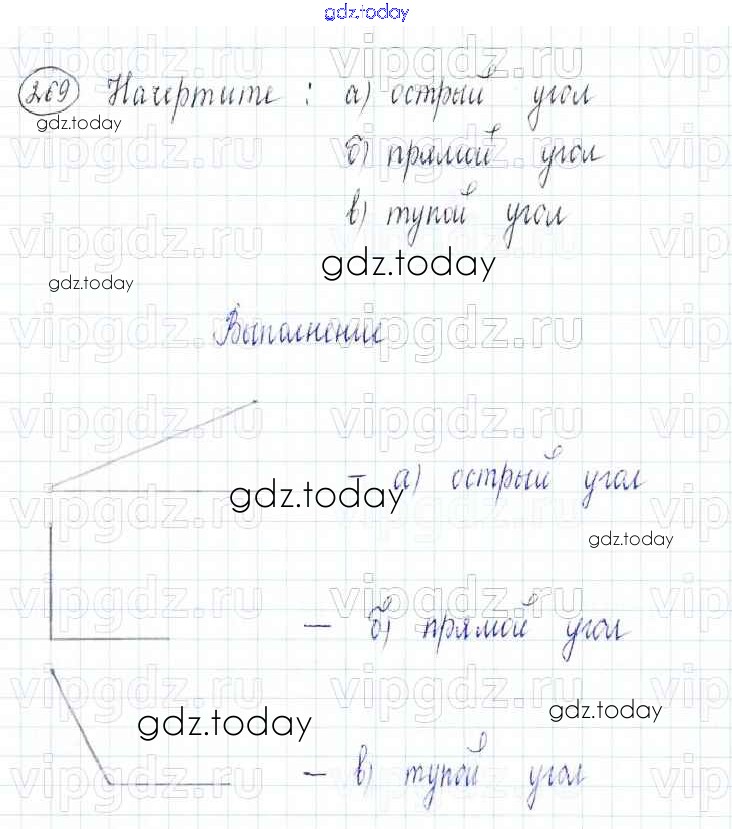 gdz.today
269 Начертите : а) острый угол
gdz.today
б) прямой угол
в) тупой угол
gdz.today
gdz.today
Выполнение
– а) острый угол
gdz.today
gdz.today
– б) прямой угол
gdz.today
gdz.today
– в) тупой угол
vipgdz.ru